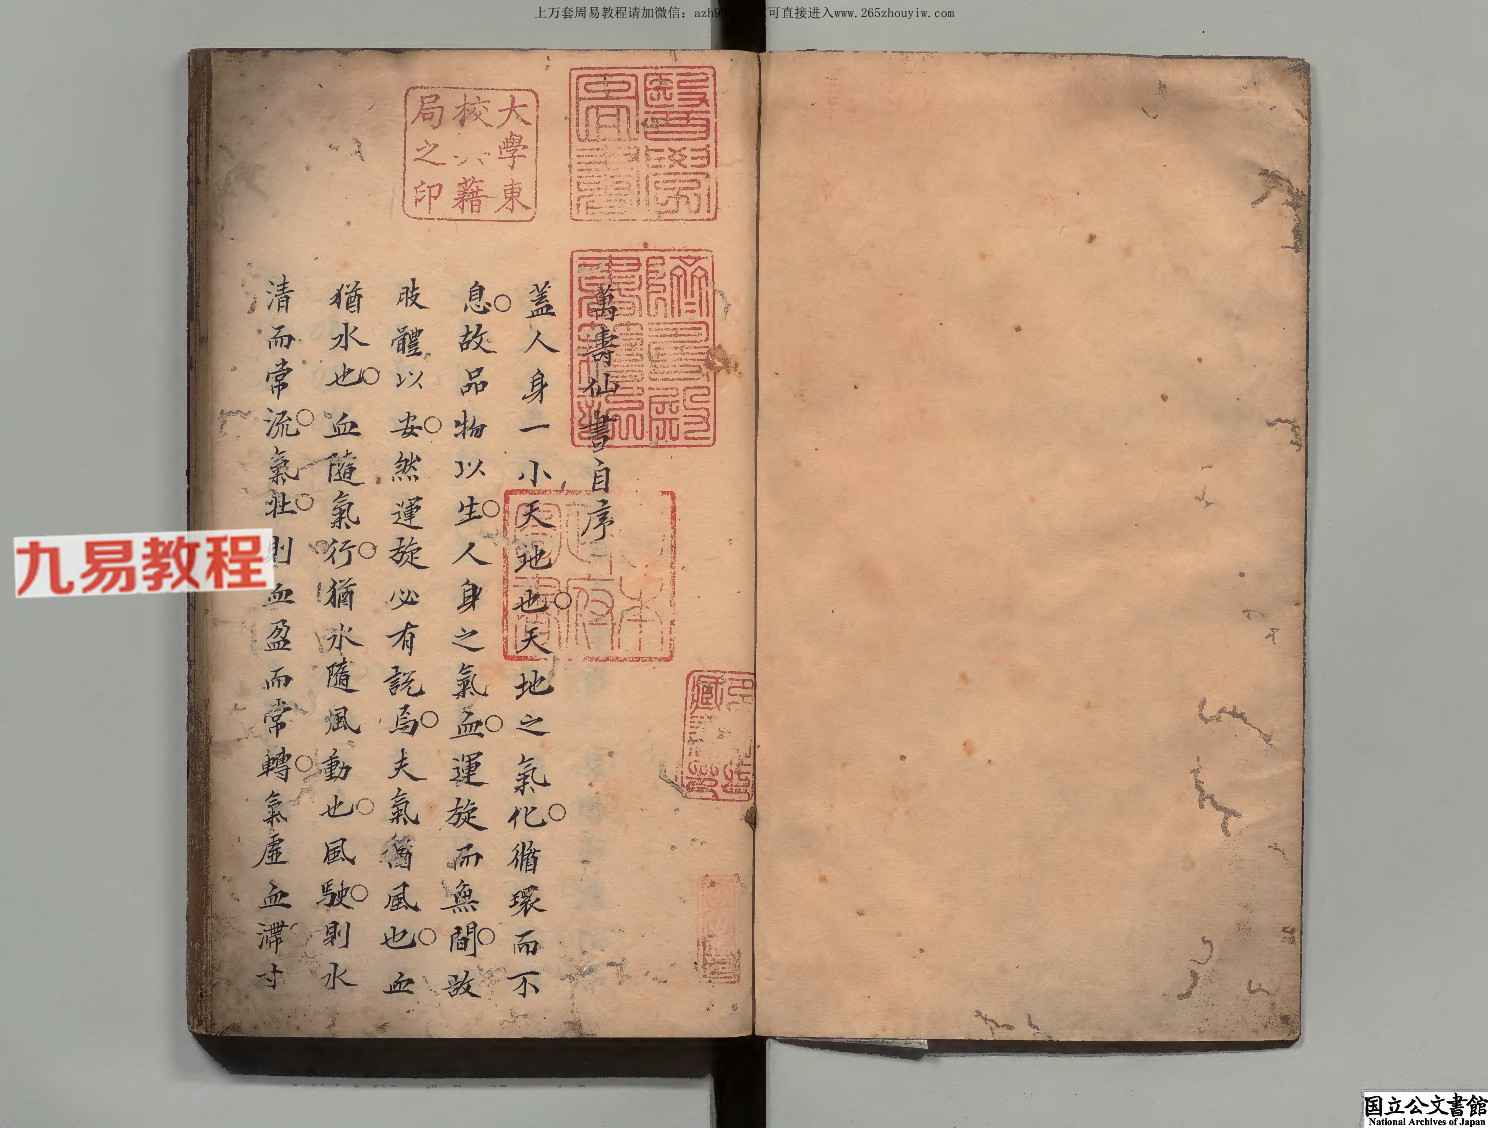 上万套周易教程请加微信：azh9 可直接进入www.265zhouyiw.com
醫學圖書
大學東
校八藉
局之印
躋壽殿書籍記
日本政府圖書
萬壽仙書自序
蓋人身一小天地也○天地之氣化○循環而不
息○故品物以生○人身之氣血○運旋而無間○故
肢體以安○然運旋必有説焉○夫氣猶風也○血
猶水也○血隨氣行○猶水隨風動也○風駛○則水
清而常流○氣壯○則血盈而常轉○氣虛血滯寸
九易教程
国立公文書館
National Archives of Japan